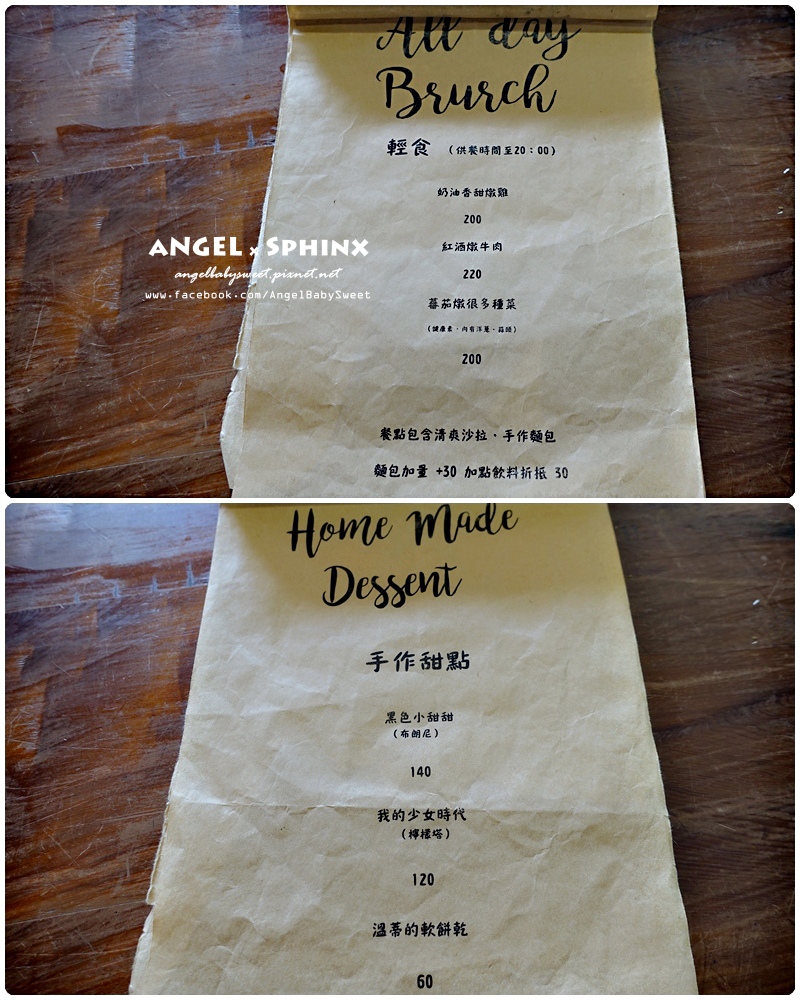 All day
Brurch
輕食 (供餐時間至20:00)
奶油香甜燉雞
200
紅酒燉牛肉
220
蕃茄燉很多種菜
(健康素,內有洋蔥、蒜頭)
200
餐點包含清爽沙拉、手作麵包
麵包加量 +30 加點飲料折抵 30
ANGEL x SPHINX
angelbabysweet.pixnet.net
www.facebook.com/AngelBabySweet
Home Made
Dessent
手作甜點
黑色小甜甜
(布朗尼)
140
我的少女時代
(檸檬塔)
120
溫蒂的軟餅乾
60